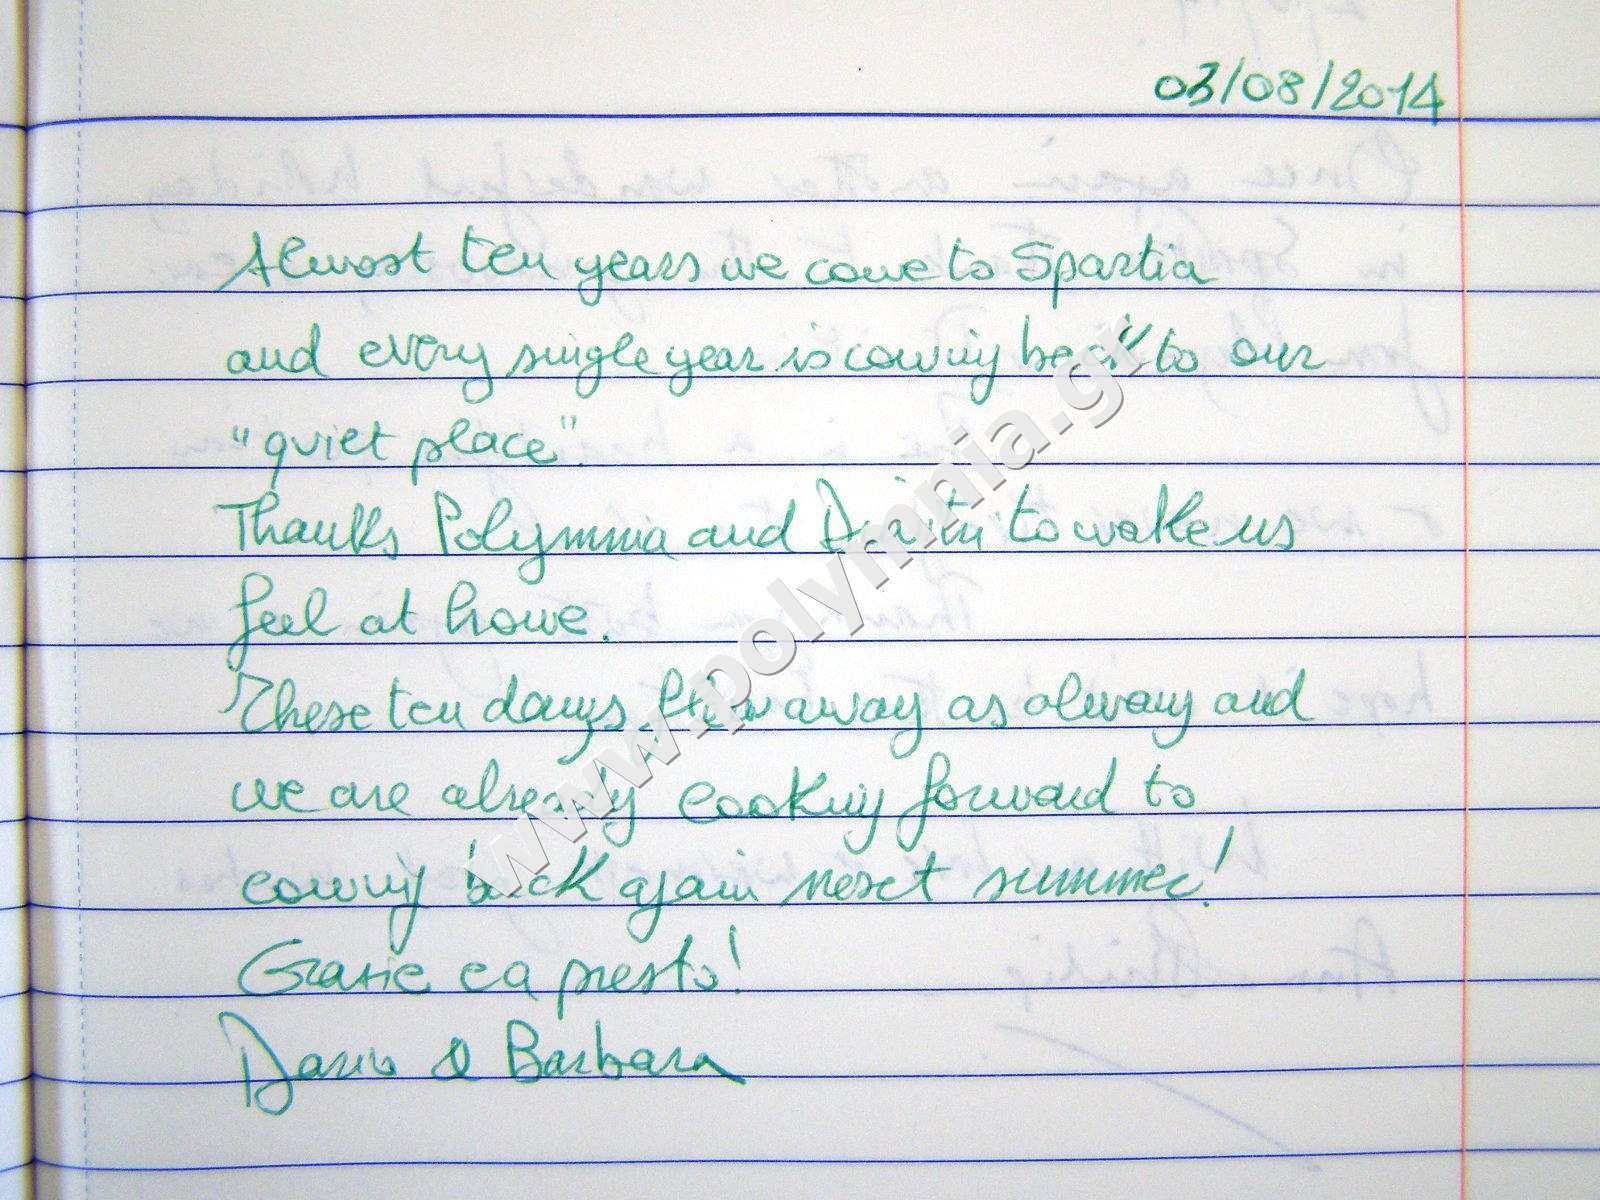 03/08/2014
Almost ten years we come to Spartia
and every single year is coming back to our
"quiet place".
Thanks Polymnia and to make us
feel at home.
These ten days flew away as alway and
we are already looking forward to
coming back again next summer!
Grazie e a presto!
Dario & Barbara
www.polymnia.gr